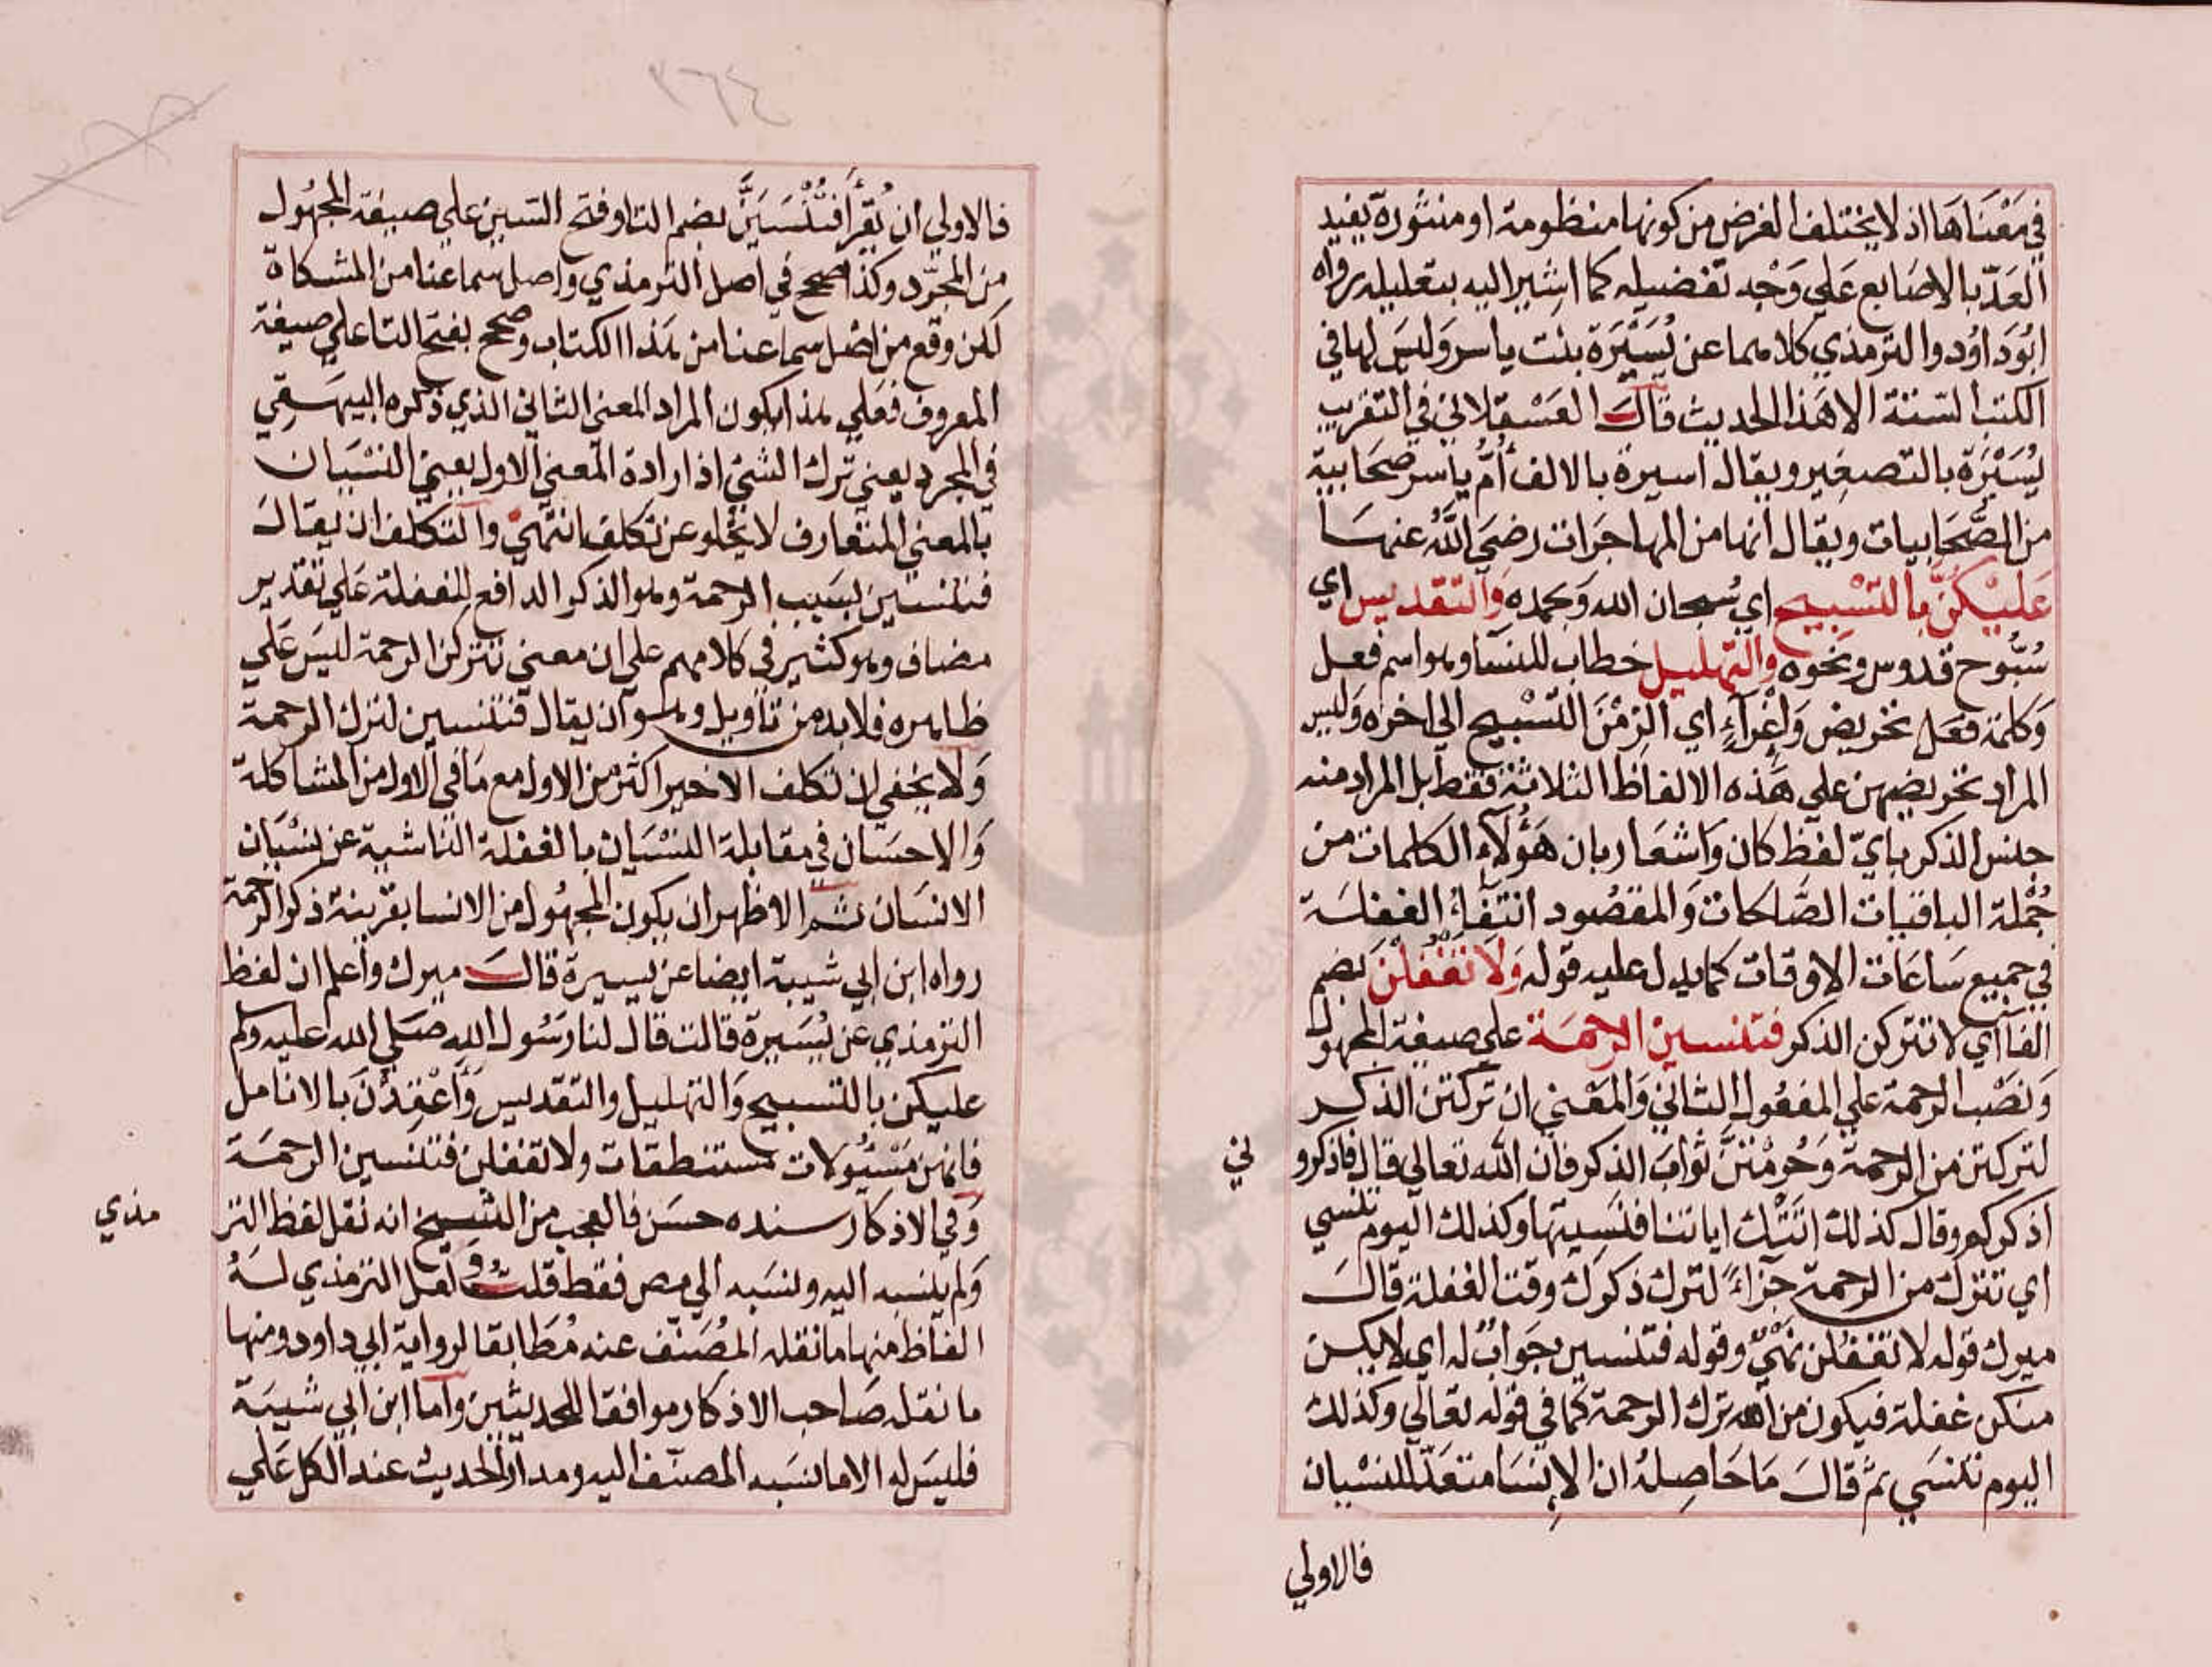 في مَعْنَاهَا اذ لا يختلف الغرض من كونها منظومة او منثورة يفيد
العَدّ بالاصَابع عَلي وَجْه تفضيله كما اشِير اليه بتعليله رواه
ابُودَاوُد والترمذي كلاهما عن يُسَيْرَة بنت ياسر وَليسَ لها في
الكتب الستتة الا هَذا الحديث قالَ العَسْقلاني في التقريب
يُسَيْرَة بالتصغِير ويقال اسيرة بالالف أُمُّ ياسر صحَابية
من الصَّحَابيات ويقال انها من المهاجَرات رضيَ اللَّهُ عنهَا
عَليْكُنَّ بالتسْبيح اي سُبحان الله وَبحمده وَالتقديس اي
سُبُّوح قدوس ونحَوه والتهليل خطاب للنسَآ وهو اسم فعل
وَكلمة فعَل تحريض وَإغْرآءٍ اي الزمْنَ التسْبيح الى اخره وَليس
المراد تحريضهن علي هَذه الالفاظ الثلاثة فقط بل المراد منه
جنس الذكر بايّ لفظ كان وَاشعَار بان هَؤلآءِ الكلمات من
جُمْلة الباقيات الصَّالحات وَالمقصُود انتفَآءُ الغفلَة
في جميع سَاعَات الاوقات كما يدل عليه قوله وَلَا تغفُلْنَ بَضم
الفآ اي لا تتركن الذكر فتنسين الرحمَة علي صيغة المجهول
وَنصْب الرحمَة علي المفعُول الثاني وَالمعْني ان تركتن الذكر
لتركتن من الرحمة وَحُرمْتنَّ ثوابَ الذكر فان الله تعالي قال فاذكرو
ني
اذكركم وقال كذلك اتَتْك اياتنا فنَسِيتها وكذلك اليوم تنْسي
اي تترك من الرحمة جزآءً لترك ذكرك وقت الغفلة قالَ
ميرك قوله لا تغفُلن نهيٌ وقوله فتنسين جَوابٌ له اي لا يكن
منكن غفلة فيكون من الله ترك الرحمة كما في قوله تعالي وكذلك
اليوم تنسَي ثم قالَ مَا حَاصِلهُ ان الإنسَا متعَدّ للنسْيان
فالاولي
٣٦٤
فالاولي ان يُقرَأ فتُنْسَيَنَّ بضم التا وفتح السين علي صيغة المجهُول
من المجَّرد وكذا صحح في اصل الترمذي واصل سماعنا من المشكاة
لكن وقع من اصْل سماعنا من هذا الكتاب وصحح بفتح التا علي صيغة
المعروف فعَلي هذا يكون المراد المعني الثاني الذي ذكره البيهَقي
في المجرد يعني ترك الشئ اذ ارادة المعني الاول يعني النسْيان
بالمعني المتعارف لا يخْلو عن تكلف انتهيَ والتكلف ان يقالَ
فتنسين بسَبب الرحمة وهو الذكر الدافع للغفلة عَلي تقدير
مضاف وهو كثير في كلامهم علي ان معني تتركن الرحمة ليسَ عَلي
ظاهره فلا بد من تاويل وهو ان يقال فتنسين لترك الرحمة
وَلا يخفي ان تكلف الاخير اكثر من الاول مع مَا في الاول من المشاكلة
وَالاحسَان في مقابلة النسْيان بالغفلة الناشية عن نِسْيَان
الانسَان ثم الاظهر ان يكون المجهُول من الانسا بقرينة ذكر الرحمة
رواه ابن ابي شيبة ايضا عن يسيرة قالَ ميرك واعلم ان لفظ
الترمذي عن يُسَيرة قالت قال لنا رَسُول الله صَلي الله عليه وسلم
عليكن بالتسبيح وَالتهليل والتقديس وَاعْقِدْنَ بالانامل
فانهن مَسْئُولات مستنطقات ولا تغفلن فتنسين الرحمَة
وَفي الاذكار سنده حسَن فالعجب من الشيخ انه نقل لفظ التر
مذي
وَلم ينسبه اليه ونسَبه الي مص فقط قلتُ لعل الترمذي لَهُ
الفاظ منها ما نقله المصَنّف عنه مُطَابقا لرواية ابي داود ومنها
ما نقله صَاحب الاذكار موافقا للمحديثين واما ابن ابي شيبَة
فليسَ له الا ما نسَبه المصنّف اليه ومدار الحديث عند الكل عَلي